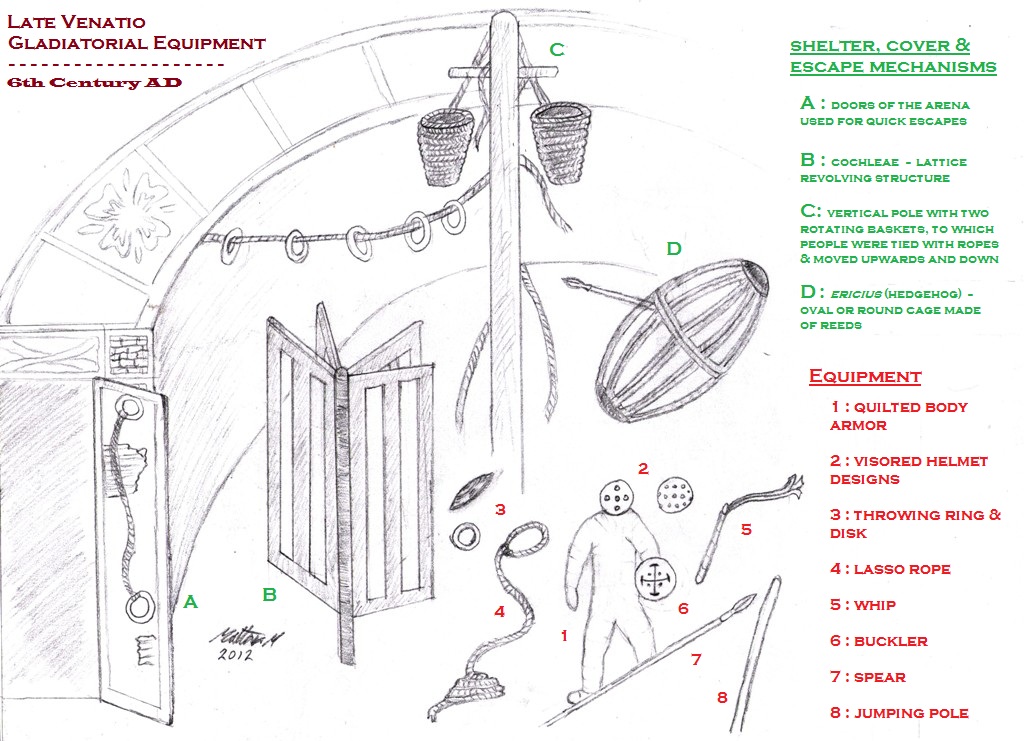 Late Venatio
Gladiatorial Equipment
--------------------
6th Century AD
SHELTER, COVER &
ESCAPE MECHANISMS
A : DOORS OF THE ARENA
USED FOR QUICK ESCAPES
B : COCHLEAE - LATTICE
REVOLVING STRUCTURE
C: VERTICAL POLE WITH TWO
ROTATING BASKETS, TO WHICH
PEOPLE WERE TIED WITH ROPES
& MOVED UPWARDS AND DOWN
D : ERICIUS (HEDGEHOG) -
OVAL OR ROUND CAGE MADE
OF REEDS
Equipment
1 : QUILTED BODY
ARMOR
2 : VISORED HELMET
DESIGNS
3 : THROWING RING &
DISK
4 : LASSO ROPE
5 : WHIP
6 : BUCKLER
7 : SPEAR
8 : JUMPING POLE
C
D
A
B
2
3
5
4
6
1
7
8
2012